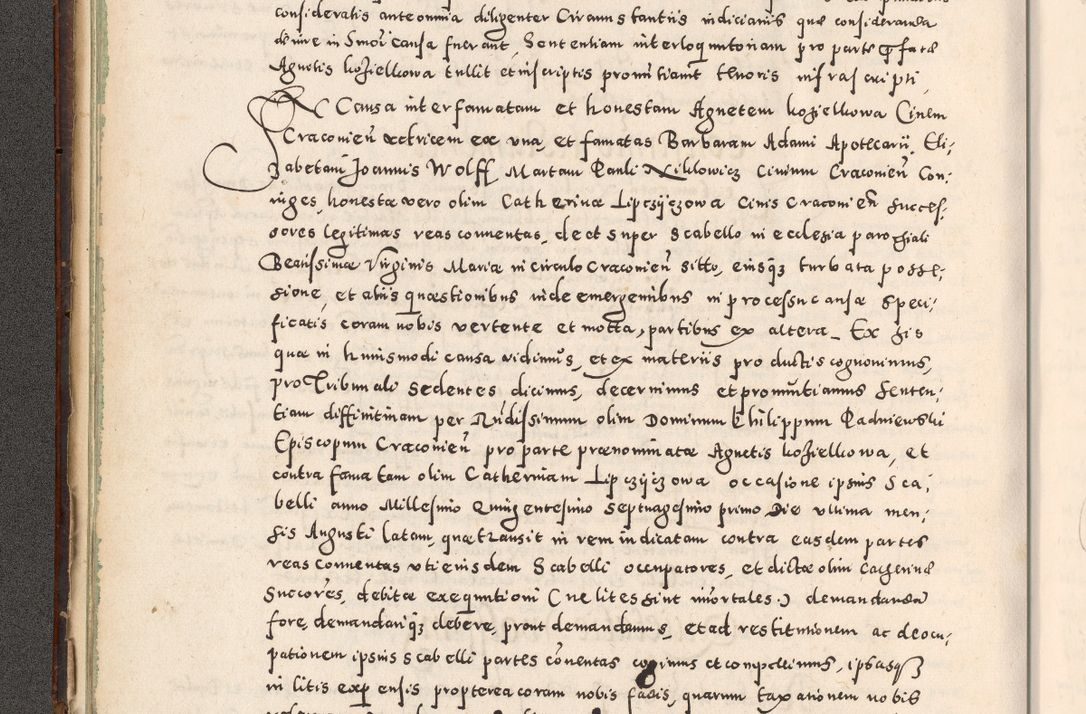 consideratis ante omnia diligenter Circumstantiis indiciariis quæ consideranda
de iure in Smoi Causa fuerant, Sententiam interloquutoriam pro parte præfatæ
Agnetis kozielkowa tullit et in scriptis pronuntiauit tenoris infrascripti
IN Causa inter famatam et honestam Agnetem kozielkowa Ciuem
Cracouieñ actricem ex una, et famatas Barbaram Adami Apotecarii, Eli-
zabetam Joannis Wolff, Martam Pauli Ciuium Cracouieñ Con-
iuges, honestæ vero olim Catherinæ Lipczyczowa Ciuis Cracouieñ succes-
sores legitimas reas conuentas, de et super Scabello in ecclesia parochiali
Beatissimæ Virginis Mariæ in circulo Cracouieñ sitto, eiusq3 turbata posse-
sione, et aliis quæstionibus inde emergentibus in processu causæ speci-
ficatis coram nobis vertente et motta, partibus ex altera. Ex his
quæ in huiusmodi causa vidimus, et ex materiis productis cognouimus,
pro Tribunali sedentes dicimus, decernimus et pronuntiamus senten-
tiam diffinitiuam per Rñdissimum olim Dominum Philippum Padniewski
Episcopum Cracouieñ pro parte prænominatæ Agnetis kozielkowa, et
contra famatam olim Catherinam Lipczyczowa occasione ipsius Sca-
belli anno Millesimo Quingentesimo Septuagesimo primo Die vltima men-
sis Augusti latam, quæ transiit in rem iudicatam contra easdem partes
reas Conuentas vti eiusdem Scabelli occupatores, et dictæ olim Catherinæ
Succores, debitæ exequutioni (ne lites sint immortales) demandanda
fore, demandariq3 debere, prout demandamus, et ad restitutionem ac deocu-
pationem ipsius scabelli partes cõnentas cogimus et compellimus, ipsasq3
in litis expensis propterea coram nobis factis, quarum taxationem nobis